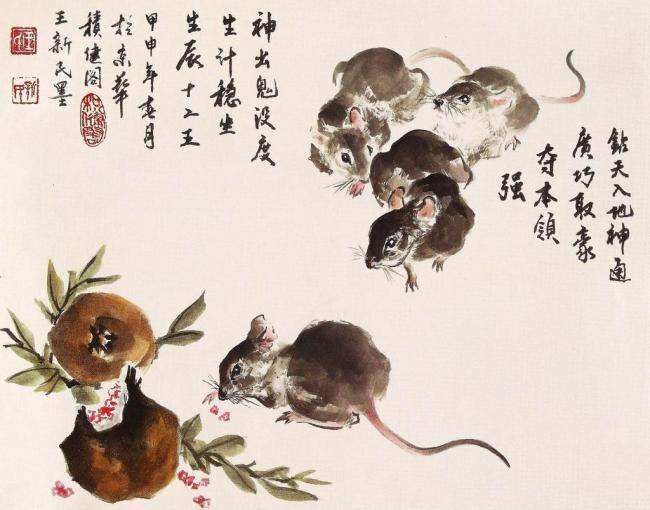 鉆天入地神通
廣巧取豪
夺本領
强
神出鬼没度
生计穩坐
生辰十二王
甲申年春月
於京華
積健阁
王新民墨